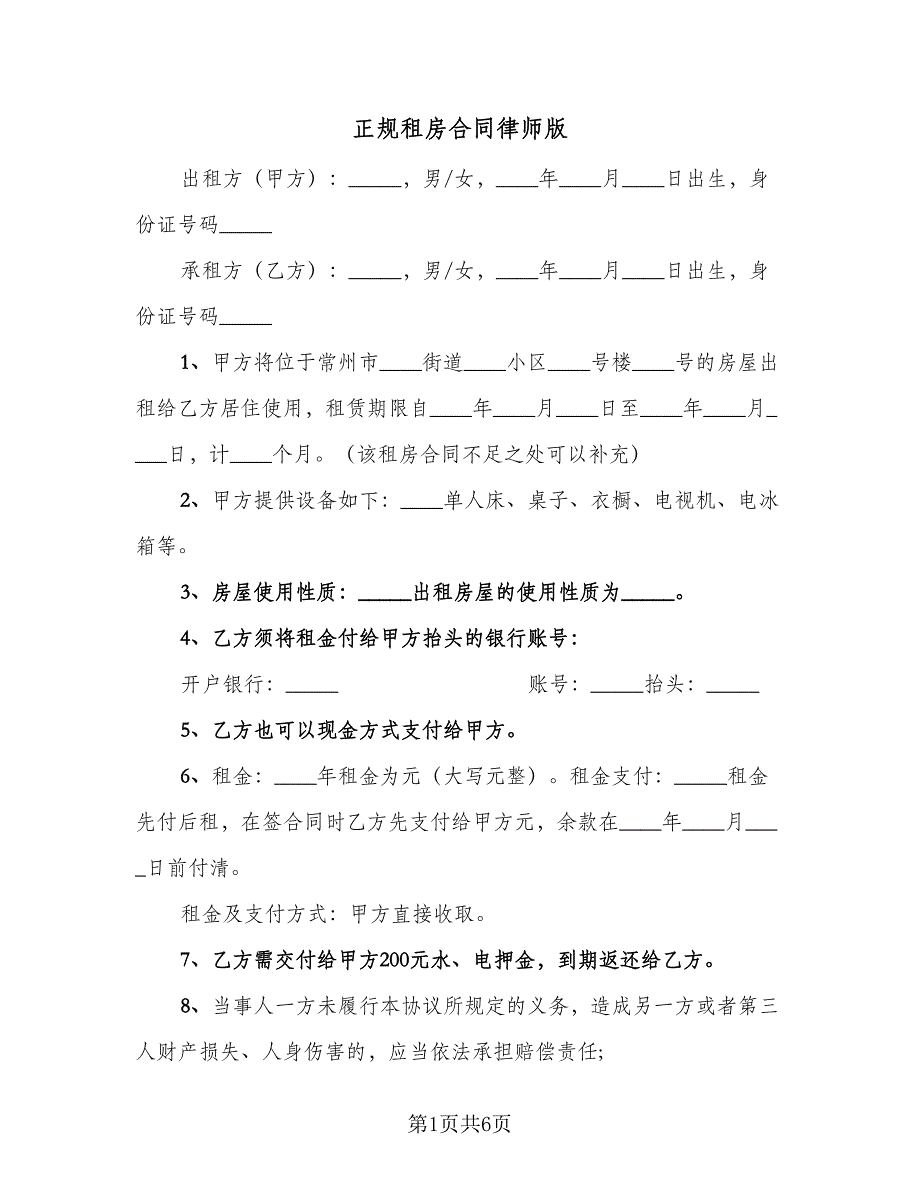 正规租房合同律师版
出租方（甲方）：_____，男/女，____年____月____日出生，身
份证号码_____
承租方（乙方）：_____，男/女，____年____月____日出生，身
份证号码_____
1、甲方将位于常州市____街道____小区____号楼____号的房屋出
租给乙方居住使用，租赁期限自____年____月____日至____年____月_
___日，计____个月。（该租房合同不足之处可以补充）
2、甲方提供设备如下：____单人床、桌子、衣橱、电视机、电冰
箱等。
3、房屋使用性质：_____出租房屋的使用性质为_____。
4、乙方须将租金付给甲方抬头的银行账号：
开户银行：_____ 账号：_____抬头：_____
5、乙方也可以现金方式支付给甲方。
6、租金：____年租金为元（大写元整）。租金支付：_____租金
先付后租，在签合同时乙方先支付给甲方元，余款在____年____月___
_日前付清。
租金及支付方式：甲方直接收取。
7、乙方需交付给甲方200元水、电押金，到期返还给乙方。
8、当事人一方未履行本协议所规定的义务，造成另一方或者第三
人财产损失、人身伤害的，应当依法承担赔偿责任;
第1页共6页